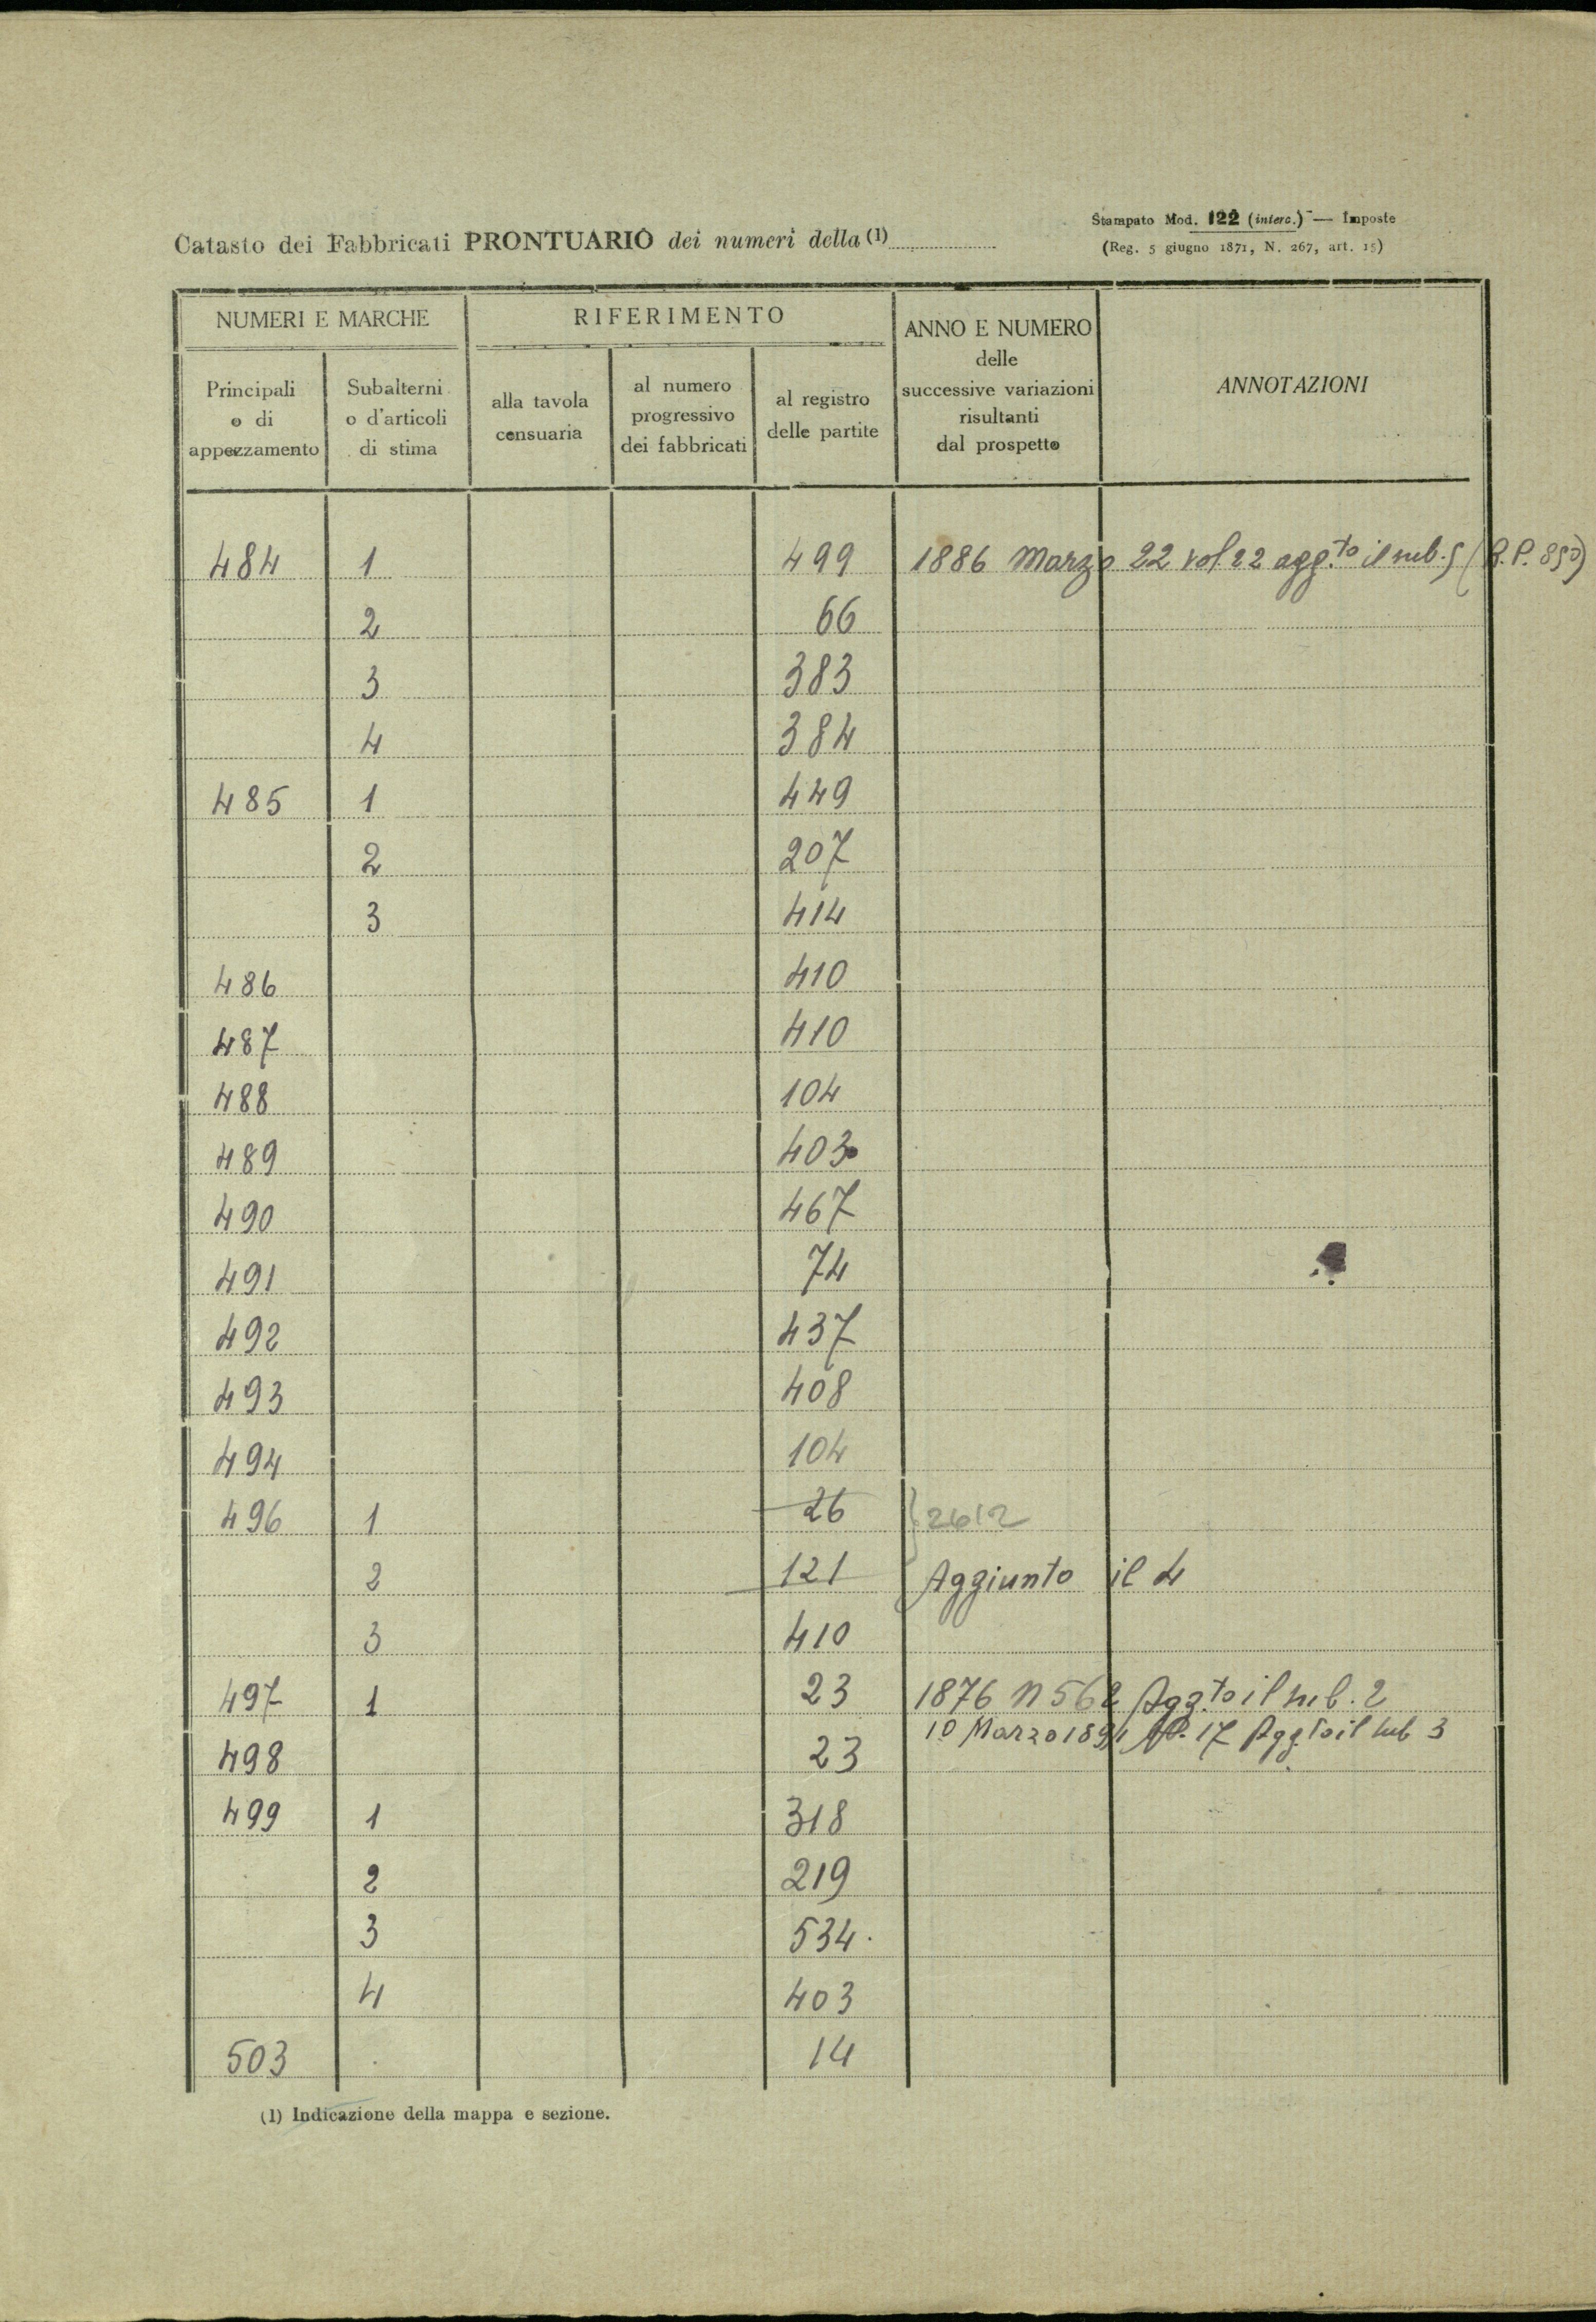 Stampato Mod. 122 (interc.) — Imposte
Catasto dei Fabbricati PRONTUARIO dei numeri della (1)
(Reg. 5 giugno 1871, N. 267, art. 15)
NUMERI E MARCHE
RIFERIMENTO
ANNO E NUMERO delle successive variazioni risultanti dal prospetto
ANNOTAZIONI
Principali o di appezzamento
Subalterni o d'articoli di stima
alla tavola censuaria
al numero progressivo dei fabbricati
al registro delle partite
484 1 499 1886 Marzo 22 vol. 22 agg.to il sub. 5 (R.P. 850)
2 66
3 383
4 384
485 1 449
2 207
3 414
486 410
487 410
488 104
489 403
490 467
491 74
492 437
493 408
494 104
496 1 26 2612
2 121 Aggiunto il 4
3 410
497 1 23 1876 N 562 Agg.to il sub. 2
10 Marzo 1891 17 Agg.to il sub 3
498 23
499 1 318
2 219
3 534.
4 403
503 14
(1) Indicazione della mappa e sezione.